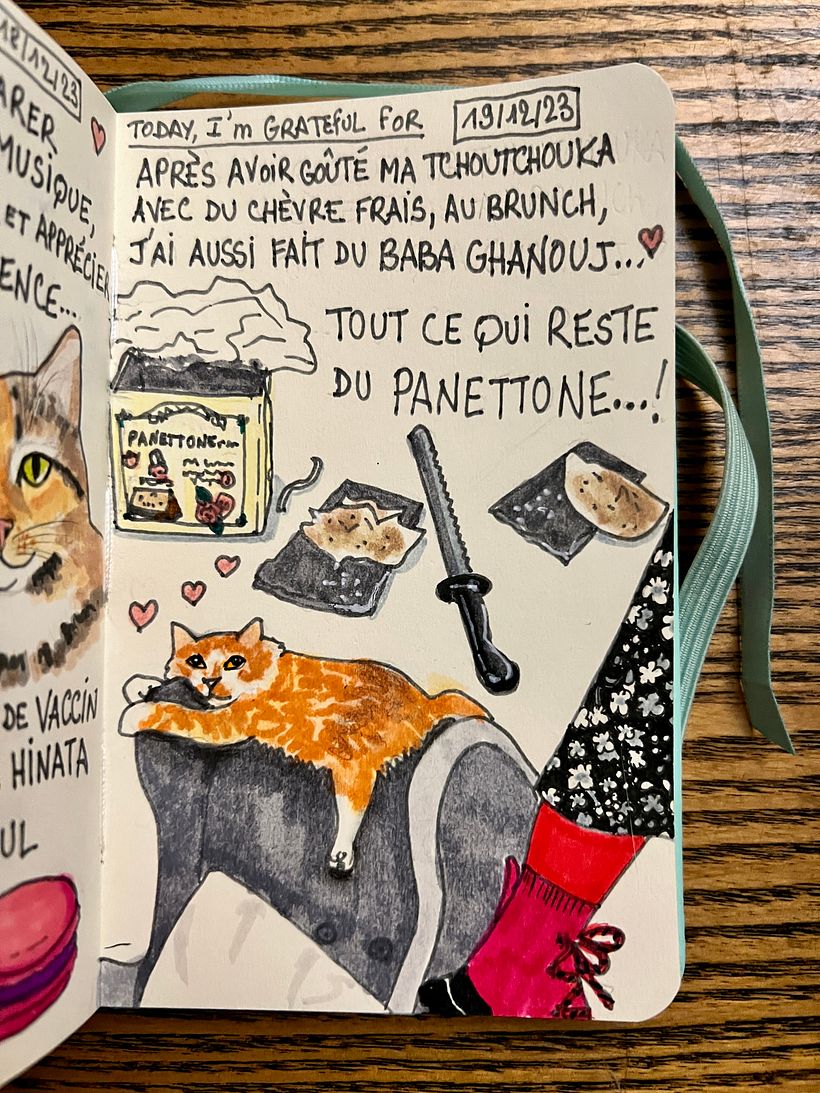 18/12/23
ARER
MUSIQUE,
ET APPRÉCIER
ENCE...
DE VACCIN
HINATA
UL
TODAY, I'm GRATEFUL FOR 19/12/23
APRÈS AVOIR GOÛTÉ MA TCHOUTCHOUKA
AVEC DU CHÈVRE FRAIS, AU BRUNCH,
J'AI AUSSI FAIT DU BABA GHANOUJ...
TOUT CE QUI RESTE
DU PANETTONE...!
PANETTONE